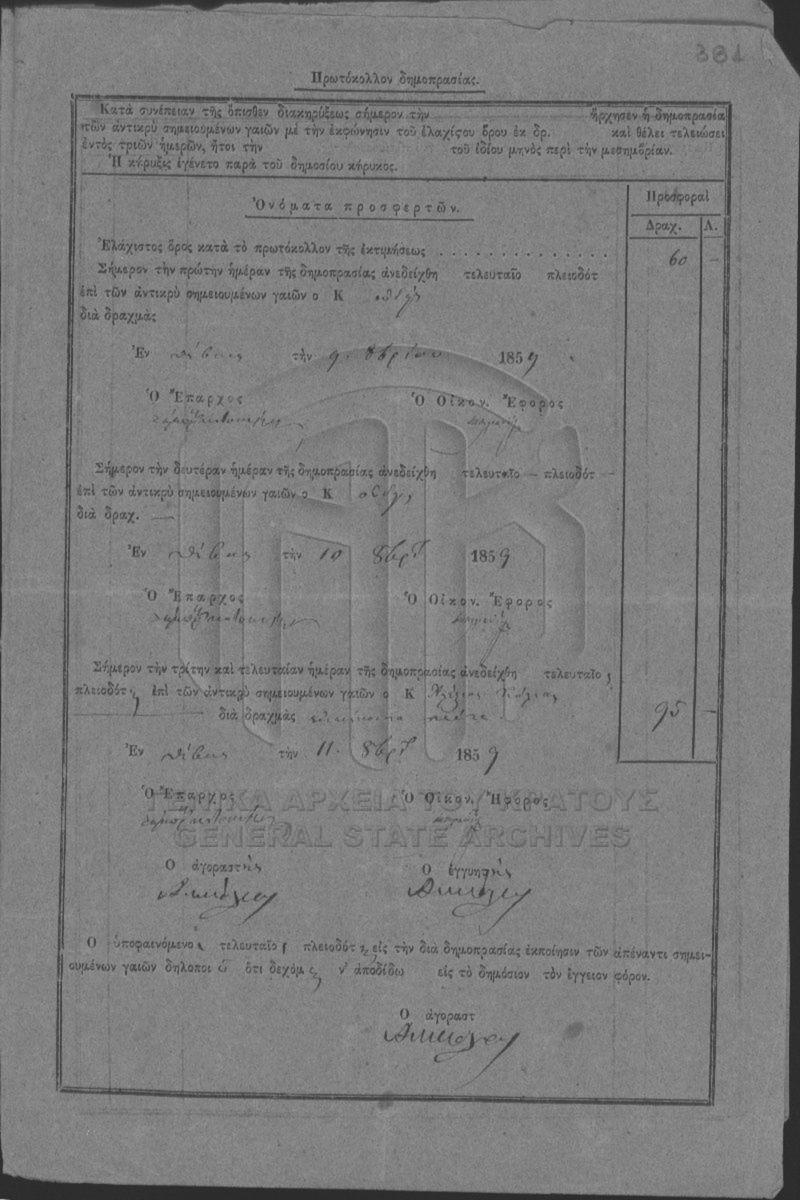 381
Πρωτόκολλον δημοπρασίας.
Κατὰ συνέπειαν τῆς ὄπισθεν διακηρύξεως σήμερον τὴν ἤρχησεν ἡ δημοπρασία
τῶν ἀντικρὺ σημειουμένων γαιῶν μὲ τὴν ἐκφώνησιν τοῦ ἐλαχίςου ὅρου ἐκ δρ. καὶ θέλει τελειώσει
ἐντὸς τριῶν ἡμερῶν, ἤτοι τὴν τοῦ ἰδίου μηνὸς περὶ τὴν μεσημβρίαν.
Ἡ κήρυξις ἐγένετο παρὰ τοῦ δημοσίου κήρυκος.
Προσφοραὶ
Ὀνόματα προσφερτῶν.
Δραχ. Λ.
Ἐλάχιστος ὅρος κατὰ τὸ πρωτόκολλον τῆς ἐκτιμήσεως . . . . . . . . . . . . . . 60 —
Σήμερον τὴν πρώτην ἡμέραν τῆς δημοπρασίας ἀνεδείχθη τελευταῖο πλειοδότ
ἐπὶ τῶν ἀντικρὺ σημειουμένων γαιῶν ο Κ
διὰ δραχμὰς
Ἐν Θήβαις τὴν 9 8βρίου 1859
Ὁ Ἔπαρχος Ὁ Οἰκον. Ἔφορος
Σήμερον τὴν δευτέραν ἡμέραν τῆς δημοπρασίας ἀνεδείχθη τελευταῖο — πλειοδότ —
ἐπὶ τῶν ἀντικρὺ σημειουμένων γαιῶν ο Κ
διὰ δραχ. —
Ἐν Θήβαις τὴν 10 8βρ 1859
Ὁ Ἔπαρχος Ὁ Οἰκον. Ἔφορος
Σήμερον τὴν τρίτην καὶ τελευταίαν ἡμέραν τῆς δημοπρασίας ἀνεδείχθη τελευταῖος
πλειοδότης ἐπὶ τῶν ἀντικρὺ σημειουμένων γαιῶν ο Κ
διὰ δραχμὰς ἐνενήκοντα πέντε 95 —
Ἐν Θήβαις τὴν 11 8βρ 1859
Ὁ Ἔπαρχος Ὁ Οἰκον. Ἔφορος
ΓΕΝΙΚΑ ΑΡΧΕΙΑ ΤΟΥ ΚΡΑΤΟΥΣ
GENERAL STATE ARCHIVES
Ο ἀγοραστής Ο ἐγγυητής
Ο ὑποφαινόμενος τελευταῖος πλειοδότης εἰς τὴν διὰ δημοπρασίας ἐκποίησιν τῶν ἀπέναντι σημει-
ουμένων γαιῶν δηλοποιῶ ὅτι δεχόμ ν' ἀποδίδω εἰς τὸ δημόσιον τὸν ἔγγειον φόρον.
Ο ἀγοραστ